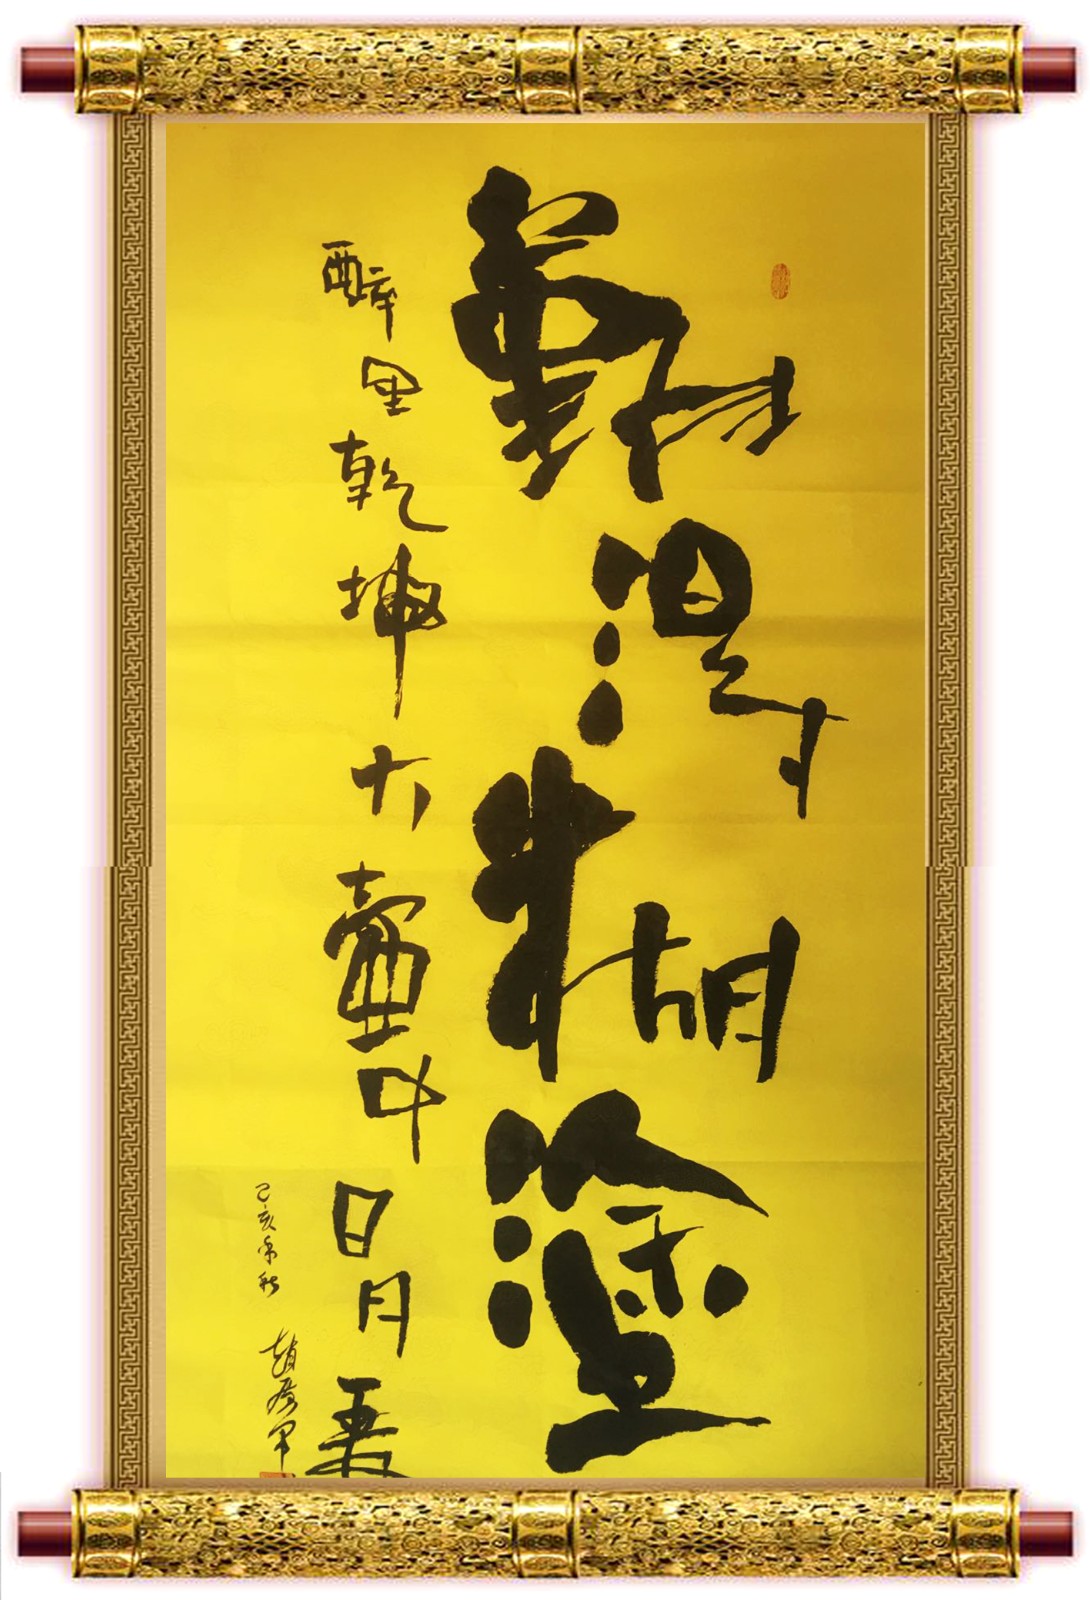 難得糊塗
醉里乾坤大壺中日月長
己亥年秋 趙